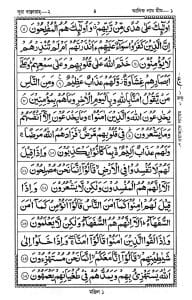 সূরা বাক্বারাহ—২ ৪ আলিফ লাম মীম—১
أُولَٰئِكَ عَلَىٰ هُدًى مِّن رَّبِّهِمْ وَأُولَٰئِكَ هُمُ الْمُفْلِحُونَ
إِنَّ الَّذِينَ كَفَرُوا سَوَاءٌ عَلَيْهِمْ ءَأَنذَرْتَهُمْ أَمْ لَمْ
تُنذِرْهُمْ لَا يُؤْمِنُونَ خَتَمَ اللَّهُ عَلَىٰ قُلُوبِهِمْ وَعَلَىٰ سَمْعِهِمْ وَعَلَىٰ
أَبْصَارِهِمْ غِشَاوَةٌ وَلَهُمْ عَذَابٌ عَظِيمٌ وَمِنَ النَّاسِ
مَن يَقُولُ آمَنَّا بِاللَّهِ وَبِالْيَوْمِ الْآخِرِ وَمَا هُم بِمُؤْمِنِينَ
يُخَادِعُونَ اللَّهَ وَالَّذِينَ آمَنُوا وَمَا يَخْدَعُونَ إِلَّا أَنفُسَهُمْ
وَمَا يَشْعُرُونَ فِي قُلُوبِهِم مَّرَضٌ فَزَادَهُمُ اللَّهُ مَرَضًا
وَلَهُمْ عَذَابٌ أَلِيمٌ بِمَا كَانُوا يَكْذِبُونَ وَإِذَا قِيلَ
لَهُمْ لَا تُفْسِدُوا فِي الْأَرْضِ قَالُوا إِنَّمَا نَحْنُ مُصْلِحُونَ
أَلَا إِنَّهُمْ هُمُ الْمُفْسِدُونَ وَلَٰكِن لَّا يَشْعُرُونَ وَإِذَا
قِيلَ لَهُمْ آمِنُوا كَمَا آمَنَ النَّاسُ قَالُوا أَنُؤْمِنُ كَمَا آمَنَ
السُّفَهَاءُ أَلَا إِنَّهُمْ هُمُ السُّفَهَاءُ وَلَٰكِن لَّا يَعْلَمُونَ
وَإِذَا لَقُوا الَّذِينَ آمَنُوا قَالُوا آمَنَّا وَإِذَا خَلَوْا إِلَىٰ
شَيَاطِينِهِمْ قَالُوا إِنَّا مَعَكُمْ إِنَّمَا نَحْنُ مُسْتَهْزِئُونَ
اللَّهُ يَسْتَهْزِئُ بِهِمْ وَيَمُدُّهُمْ فِي طُغْيَانِهِمْ يَعْمَهُونَ
মানযিল ১